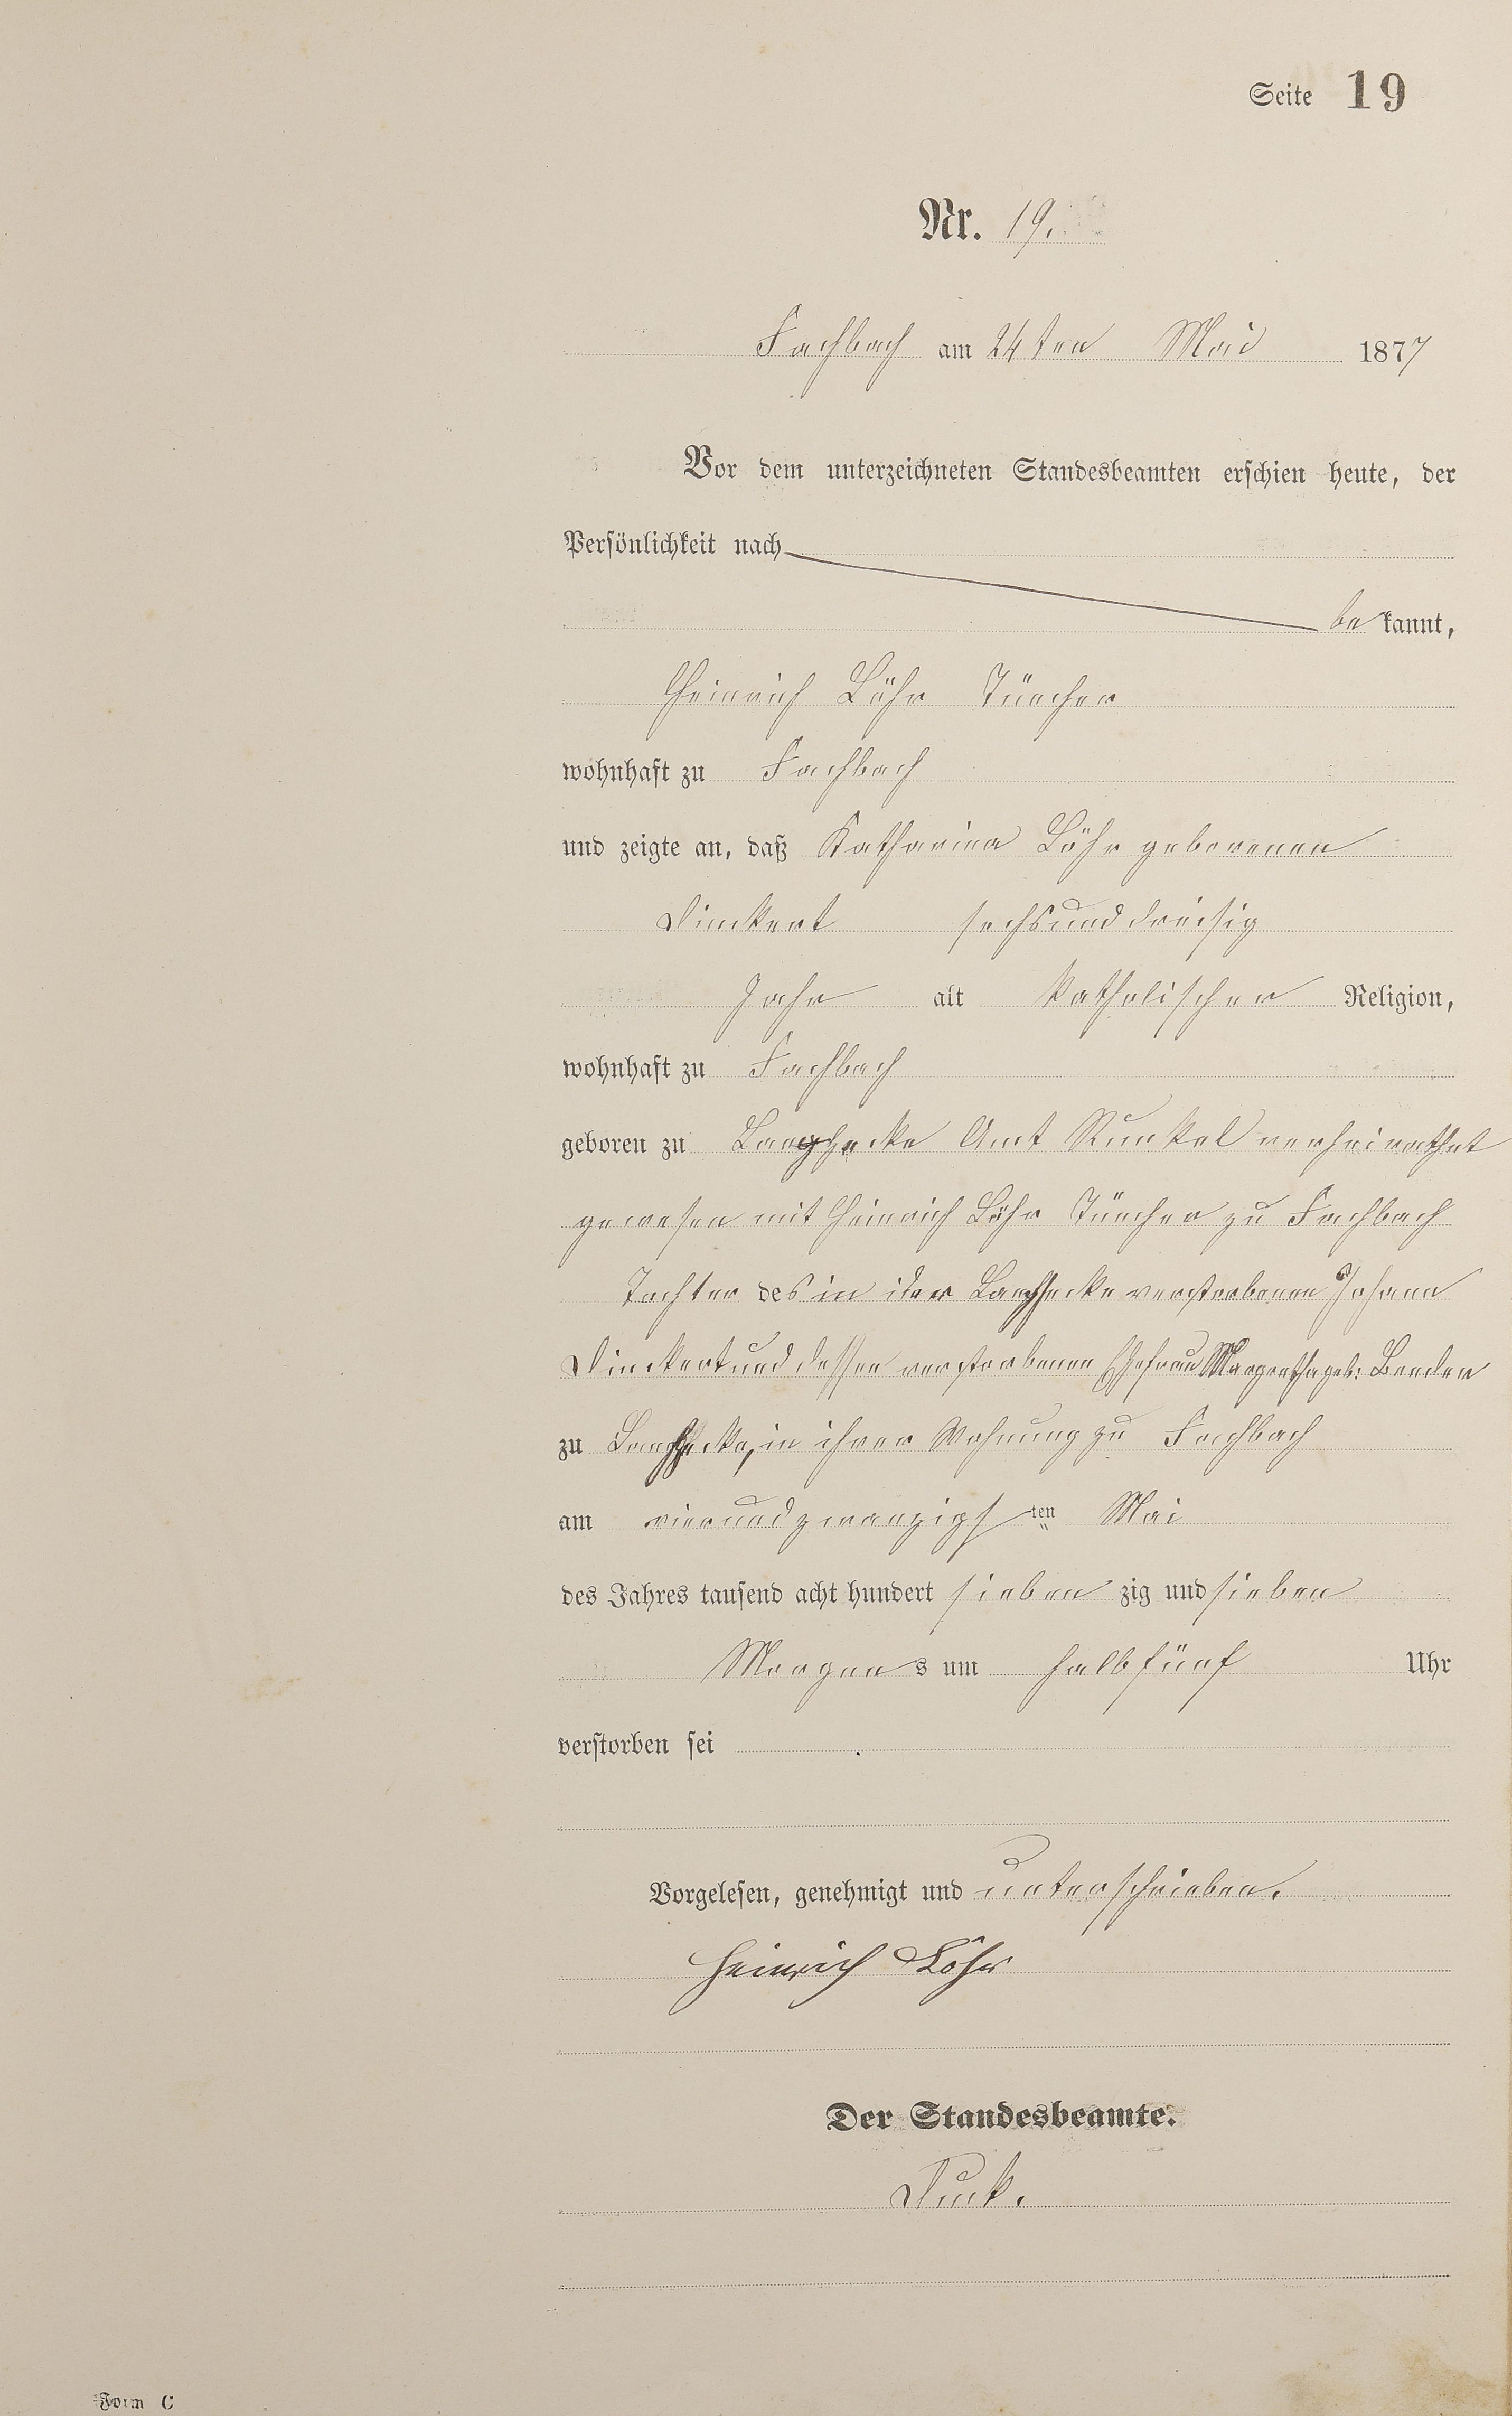 Seite 19
Nr. 19.
Fachbach am 24ten Mai 1877
Vor dem unterzeichneten Standesbeamten erschien heute, der
Persönlichkeit nach
be kannt,
Heinrich Löhr Tüncher
wohnhaft zu Fachbach
und zeigte an, daß Katharina Löhr geborenen
Dinkert sechsunddreisig
Jahr alt katholischer Religion,
wohnhaft zu Fachbach
geboren zu Langhecke Amt Runkel verheirathet
gewesen mit Heinrich Löhr Tüncher zu Fachbach
Tochter des in der Langhecke verstorbenen Johann
Dinkert und dessen verstorbenen Ehefrau Margretha geb: Bender
zu Langhecke, in ihrer Wohnung zu Fachbach
am vierundzwanzigsten Mai
des Jahres tausend acht hundert sieben zig und sieben
Morgens um halbfünf Uhr
verstorben sei
Vorgelesen, genehmigt und unterschrieben.
Heinrich Löhr
Der Standesbeamte.
Form C